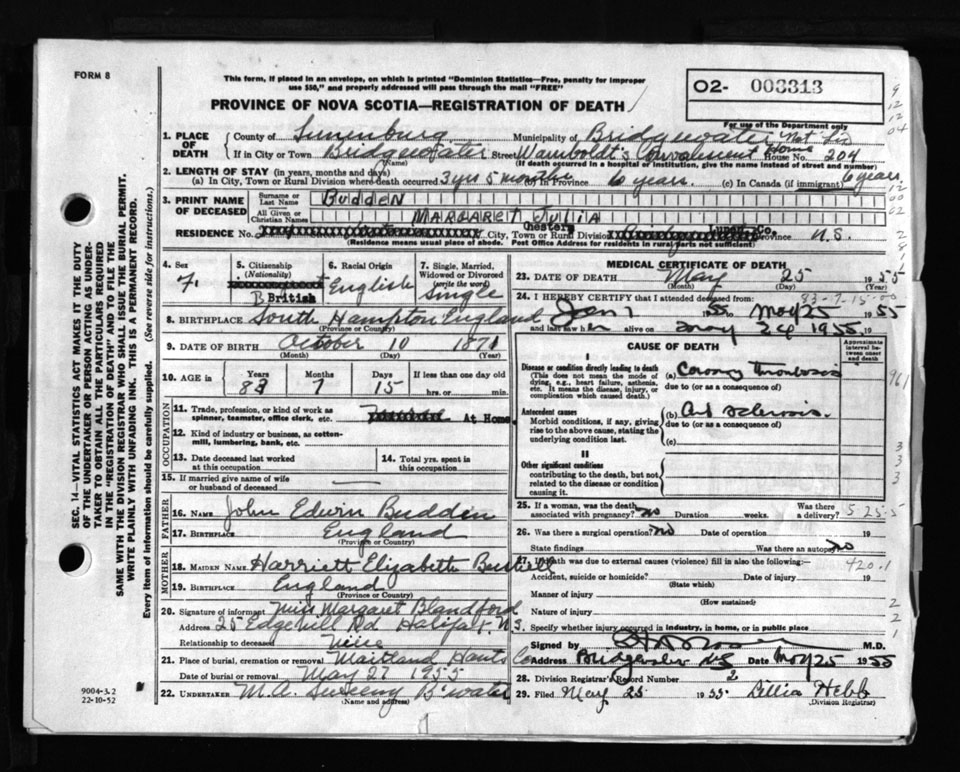 FORM 8
This form, if placed in an envelope, on which is printed "Dominion Statistics—Free, penalty for improper
use $50," and properly addressed will pass through the mail "FREE"
PROVINCE OF NOVA SCOTIA—REGISTRATION OF DEATH
O2- 003313
For use of the Department only
1. PLACE OF DEATH
County of Lunenburg Municipality of Bridgewater Not in
If in City or Town Bridgewater Street Wamboldt's Convalescent Home House No. 204
(Name) (If death occurred in a hospital or institution, give the name instead of street and number)
2. LENGTH OF STAY (in years, months and days)
(a) In City, Town or Rural Division where death occurred 3 yrs 5 months (b) In Province 6 years. (c) In Canada (if immigrant) 6 years.
3. PRINT NAME OF DECEASED
Surname or Last Name BUDDEN
All Given or Christian Names MARGARET JULIA
RESIDENCE No. City, Town or Rural Division Chester Lunen. Co. Province N.S.
(Residence means usual place of abode. Post Office Address for residents in rural parts not sufficient)
4. Sex F.
5. Citizenship (Nationality) British
6. Racial Origin English
7. Single, Married, Widowed or Divorced (write the word) Single
8. BIRTHPLACE South Hampton England
(Province or Country)
9. DATE OF BIRTH October 10 1871
(Month) (Day) (Year)
10. AGE in Years 83 Months 7 Days 15 If less than one day old
hrs. or min.
OCCUPATION
11. Trade, profession, or kind of work as spinner, teamster, office clerk, etc. At Home
12. Kind of industry or business, as cotton-mill, lumbering, bank, etc.
13. Date deceased last worked at this occupation
14. Total yrs. spent in this occupation
15. If married give name of wife or husband of deceased —
FATHER
16. Name John Edwin Budden
17. Birthplace England
(Province or Country)
MOTHER
18. MAIDEN NAME Harriett Elizabeth
19. BIRTHPLACE England
(Province or Country)
20. Signature of informant Miss Margaret Blandford
Address 25 Edgehill Rd Halifax N.S.
Relationship to deceased Niece
21. Place of burial, cremation or removal Maitland Hants Co
Date of burial or removal May 27 1955
22. UNDERTAKER M.A. Sweeny B'water
(Name and address)
MEDICAL CERTIFICATE OF DEATH
23. DATE OF DEATH May 25 1955
(Month) (Day) (Year)
83-7-15-00
24. I HEREBY CERTIFY that I attended deceased from:
Jan 1 1955 to May 25 1955
and last saw h er alive on May 24 1955, 19
CAUSE OF DEATH
Approximate interval between onset and death
I
Disease or condition directly leading to death
(This does not mean the mode of dying, e.g., heart failure, asthenia, etc. It means the disease, injury, or complication which caused death.)
(a) Coronary thrombosis
due to (or as a consequence of)
Antecedent causes
Morbid conditions, if any, giving rise to the above cause, stating the underlying condition last.
(b) Art sclerosis.
due to (or as a consequence of)
(c)
II
Other significant conditions contributing to the death, but not related to the disease or condition causing it.
25. If a woman, was the death associated with pregnancy? no Duration weeks. Was there a delivery?
26. Was there a surgical operation? no Date of operation 19
State findings Was there an autopsy no
27. If death was due to external causes (violence) fill in also the following: 420.1
Accident, suicide or homicide? Date of injury 19
(State which)
Manner of injury
(How sustained)
Nature of injury
Specify whether injury occurred in industry, in home, or in public place
Signed by M.D.
Address Bridgewater NS Date May 25 1955
28. Division Registrar's Record Number 2
29. Filed May 25 1955 Lillia Hebb
(Division Registrar)
SEC. 14—VITAL STATISTICS ACT MAKES IT THE DUTY
OF THE UNDERTAKER OR PERSON ACTING AS UNDER-
TAKER TO OBTAIN ALL THE PARTICULARS REQUIRED
IN THE "REGISTRATION OF DEATH" AND TO FILE THE
SAME WITH THE DIVISION REGISTRAR WHO SHALL ISSUE THE BURIAL PERMIT.
WRITE PLAINLY WITH UNFADING INK. THIS IS A PERMANENT RECORD.
Every item of information should be carefully supplied. (See reverse side for instructions.)
9004-3.2
22-10-52